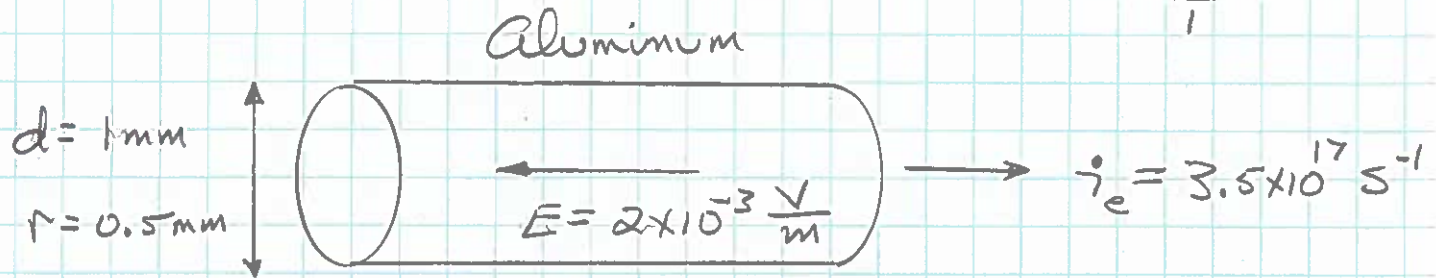 Aluminum
d = 1mm
r = 0.5mm
E = 2×10⁻³ V/m
i_e = 3.5×10¹⁷ s⁻¹